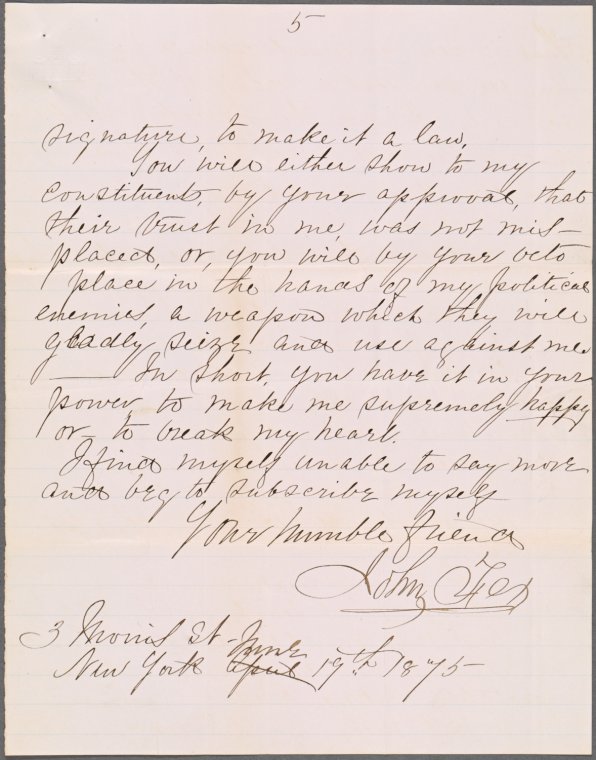 5
signature, to make it a law.
You will either show to my
constituents, by your approval, that
their trust in me, was not mis-
placed, or, you will by your veto
place in the hands of my political
enemies, a weapon which they will
gladly seize and use against me.
— In short, you have it in your
power, to make me supremely happy
or to break my heart.
I find myself unable to say more
and beg to subscribe myself
Your humble friend
John Fox
3 Morris St - June
New York April 19th 1875